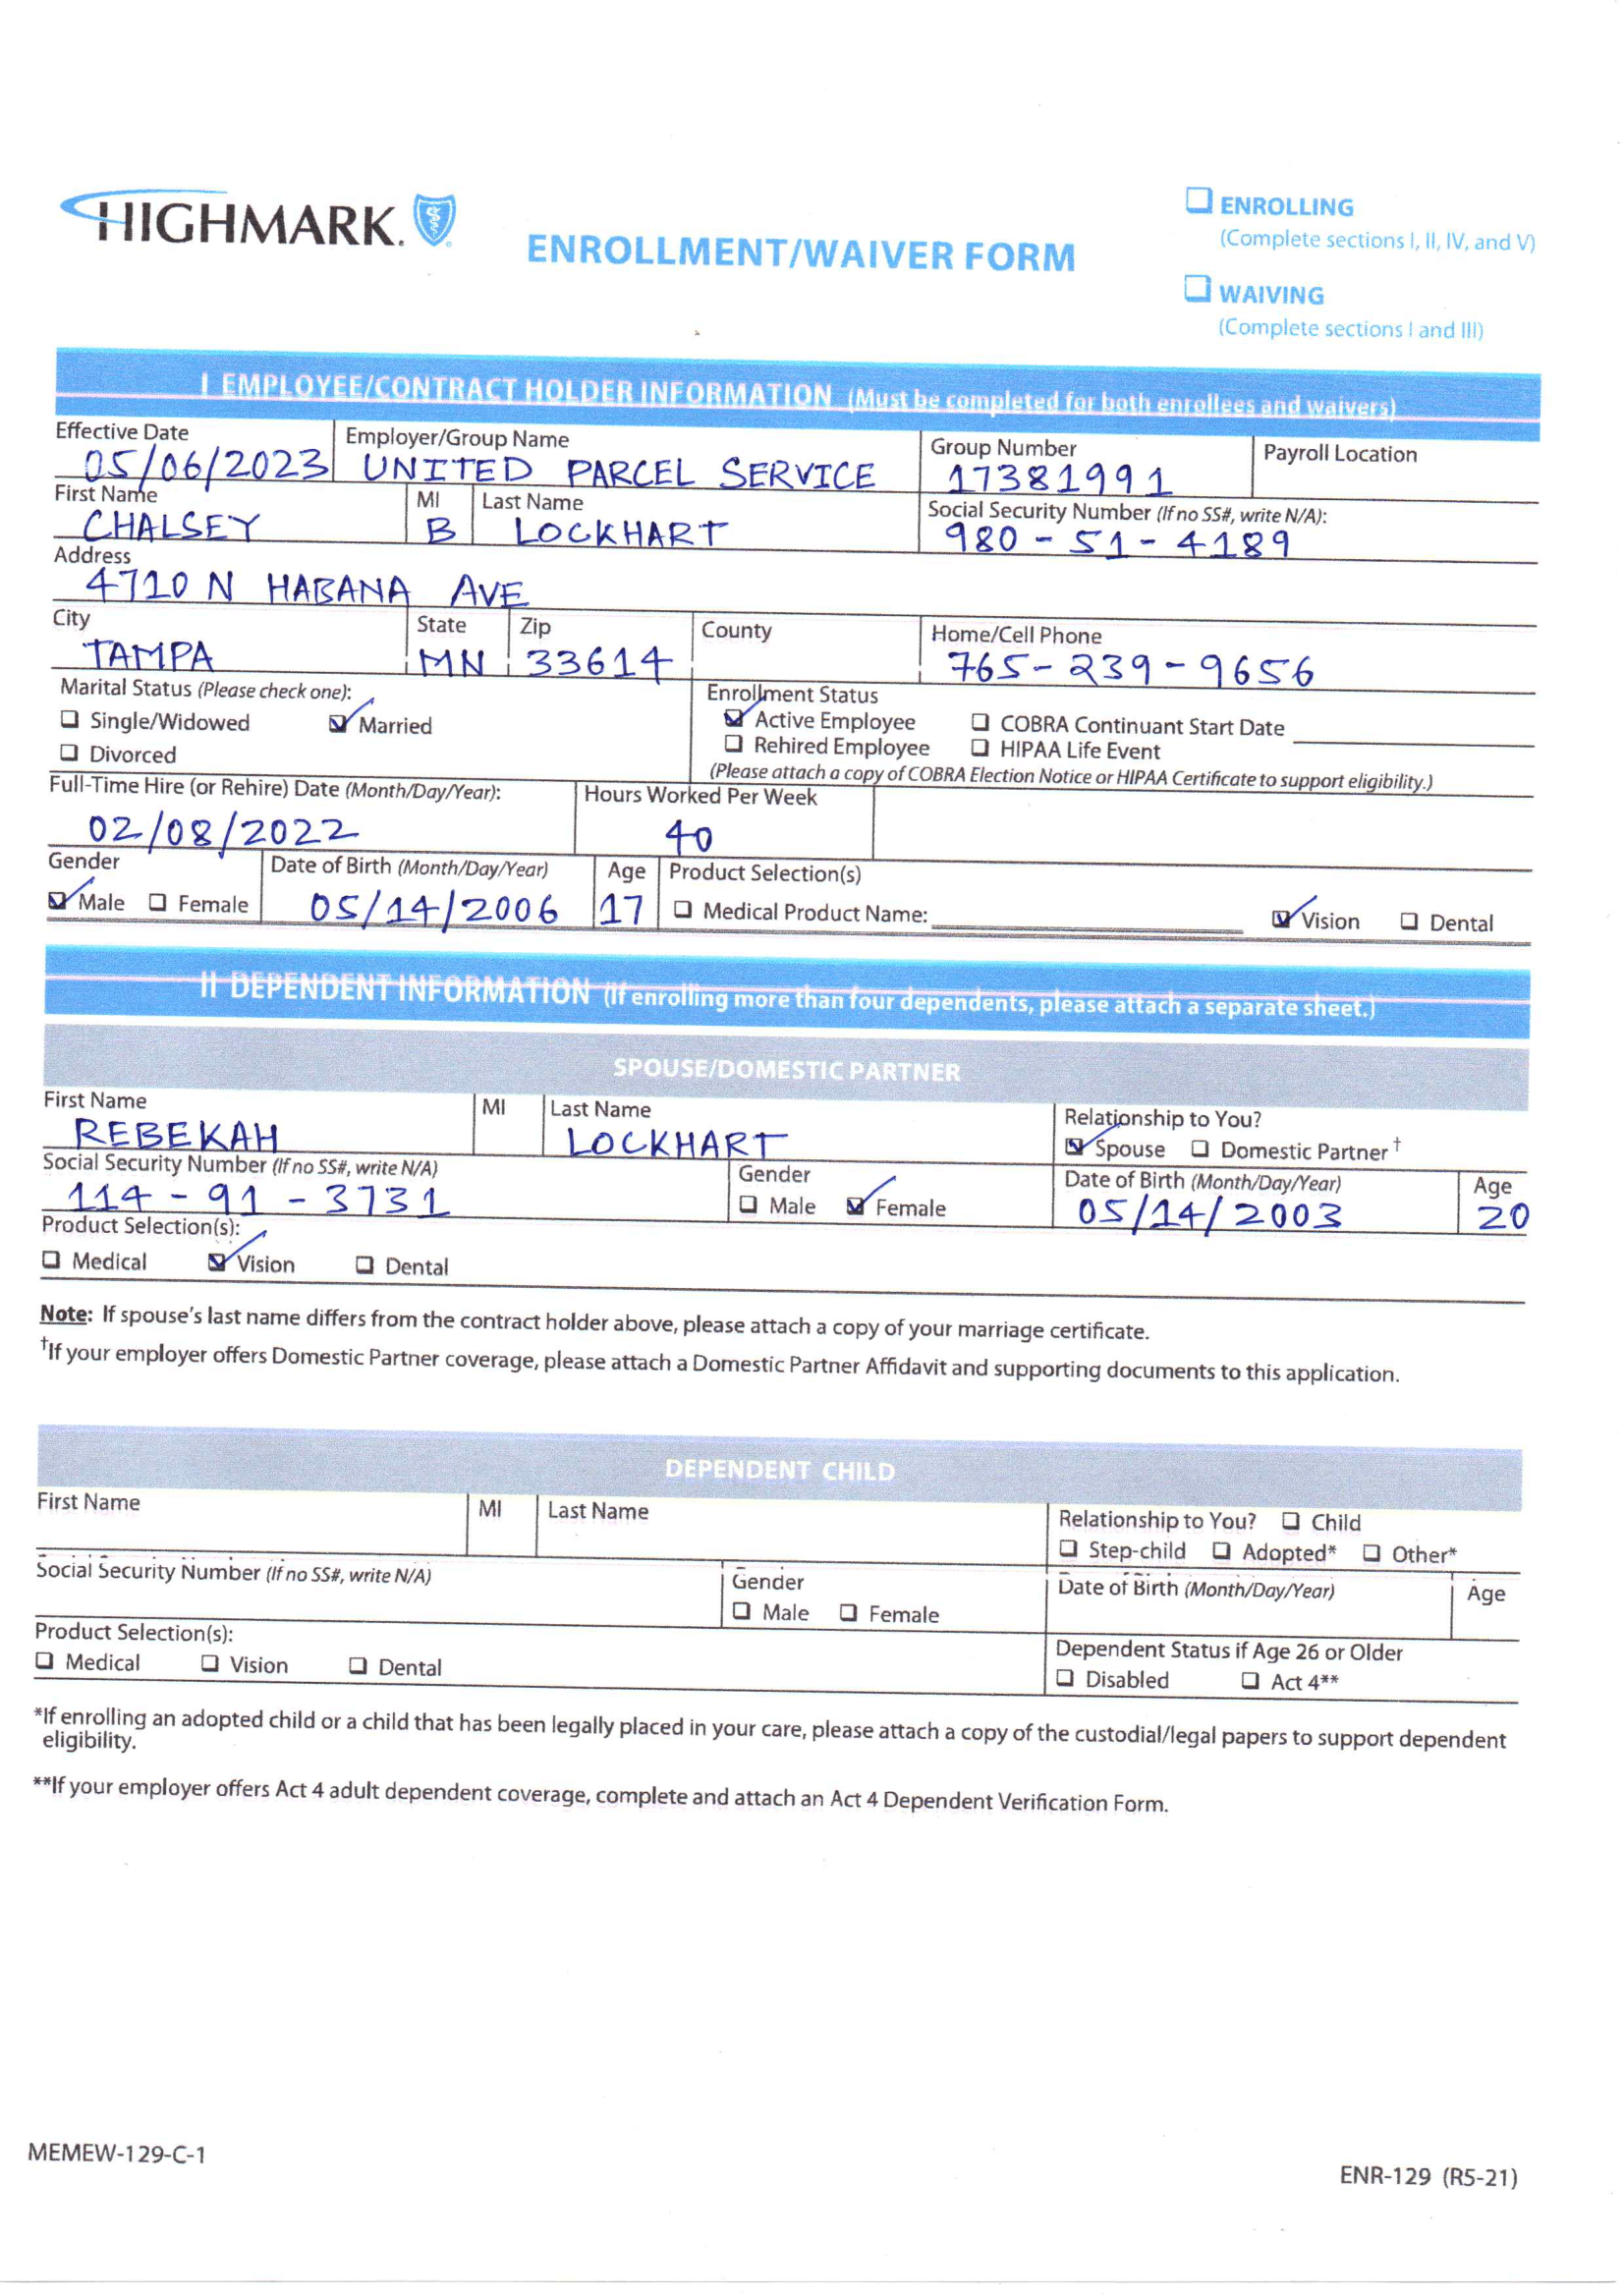 HIGHMARK.
ENROLLMENT/WAIVER FORM
❑ ENROLLING
(Complete sections I, II, IV, and V)
❑ WAIVING
(Complete sections I and III)
I EMPLOYEE/CONTRACT HOLDER INFORMATION (Must be completed for both enrollees and waivers)
Effective Date Employer/Group Name Group Number Payroll Location
05/06/2023 UNITED PARCEL SERVICE 17381991
First Name MI Last Name Social Security Number (If no SS#, write N/A):
CHALSEY B LOCKHART 980-51-4189
Address
4710 N HABANA AVE
City State Zip County Home/Cell Phone
TAMPA MN 33614 765-239-9656
Marital Status (Please check one): Enrollment Status
❑ Single/Widowed ☑ Married ☑ Active Employee ❑ COBRA Continuant Start Date
❑ Divorced ❑ Rehired Employee ❑ HIPAA Life Event
(Please attach a copy of COBRA Election Notice or HIPAA Certificate to support eligibility.)
Full-Time Hire (or Rehire) Date (Month/Day/Year): Hours Worked Per Week
02/08/2022 40
Gender Date of Birth (Month/Day/Year) Age Product Selection(s)
☑ Male ❑ Female 05/14/2006 17 ❑ Medical Product Name: ☑ Vision ❑ Dental
II DEPENDENT INFORMATION (If enrolling more than four dependents, please attach a separate sheet.)
SPOUSE/DOMESTIC PARTNER
First Name MI Last Name Relationship to You?
REBEKAH LOCKHART ☑ Spouse ❑ Domestic Partner †
Social Security Number (If no SS#, write N/A) Gender Date of Birth (Month/Day/Year) Age
114-91-3731 ❑ Male ☑ Female 05/14/2003 20
Product Selection(s):
❑ Medical ☑ Vision ❑ Dental
Note: If spouse's last name differs from the contract holder above, please attach a copy of your marriage certificate.
†If your employer offers Domestic Partner coverage, please attach a Domestic Partner Affidavit and supporting documents to this application.
DEPENDENT CHILD
First Name MI Last Name Relationship to You? ❑ Child
❑ Step-child ❑ Adopted* ❑ Other*
Social Security Number (If no SS#, write N/A) Gender Date of Birth (Month/Day/Year) Age
❑ Male ❑ Female
Product Selection(s): Dependent Status if Age 26 or Older
❑ Medical ❑ Vision ❑ Dental ❑ Disabled ❑ Act 4**
*If enrolling an adopted child or a child that has been legally placed in your care, please attach a copy of the custodial/legal papers to support dependent
eligibility.
**If your employer offers Act 4 adult dependent coverage, complete and attach an Act 4 Dependent Verification Form.
MEMEW-129-C-1
ENR-129 (R5-21)